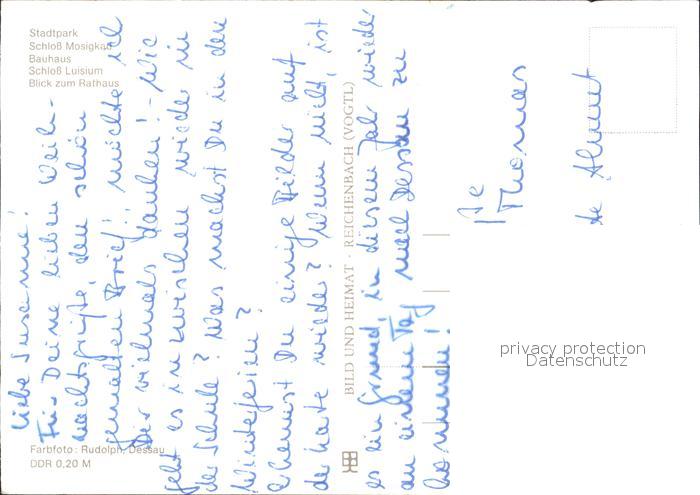 Stadtpark
Schloß Mosigkau
Bauhaus
Schloß Luisium
Blick zum Rathaus
Liebe Susanne!
Für Deine lieben Weih-
nachtsgrüße, den schön
gemalten Brief! möchte ich
Dir vielmals danken! - Wie
geht es inzwischen wieder in
der Schule? Was machst Du in den
Winterferien?
Erkennst Du einige Bilder auf
der Karte wieder? Wenn nicht, ist
es ein Grund, in diesem Jahr wieder
an einem Tag nach Dessau zu
kommen!
Thomas
Farbfoto: Rudolph, Dessau
DDR 0,20 M
BILD UND HEIMAT · REICHENBACH (VOGTL)
privacy protection
Datenschutz